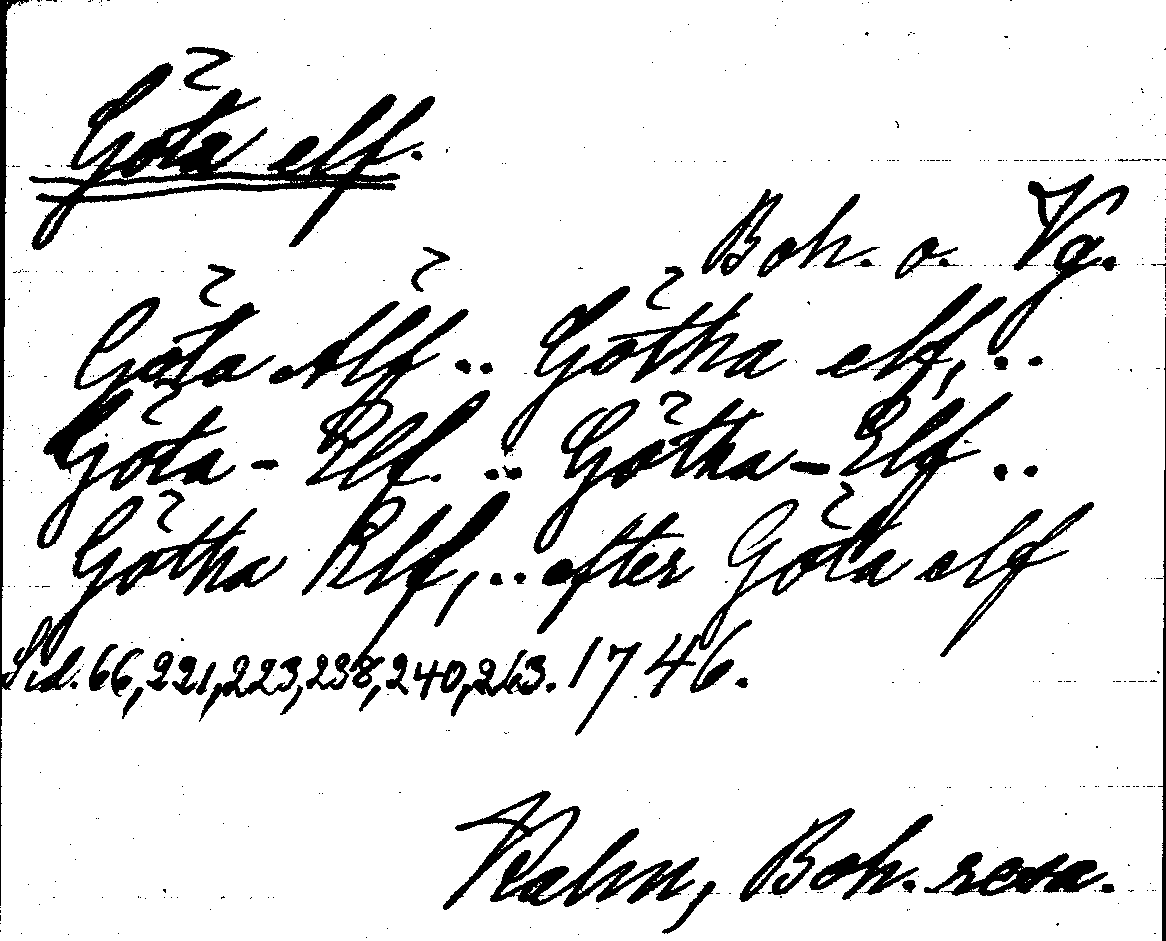 Göta elf.
Boh. o. Vg.
Göta Älf .. Götha elf, ..
Göta - Elf. .. Götha - Elf ..
Götha Elf, .. efter Göta elf
Sid. 66, 221, 223, 238, 240, 263. 1746.
Kalm, Boh. resa.